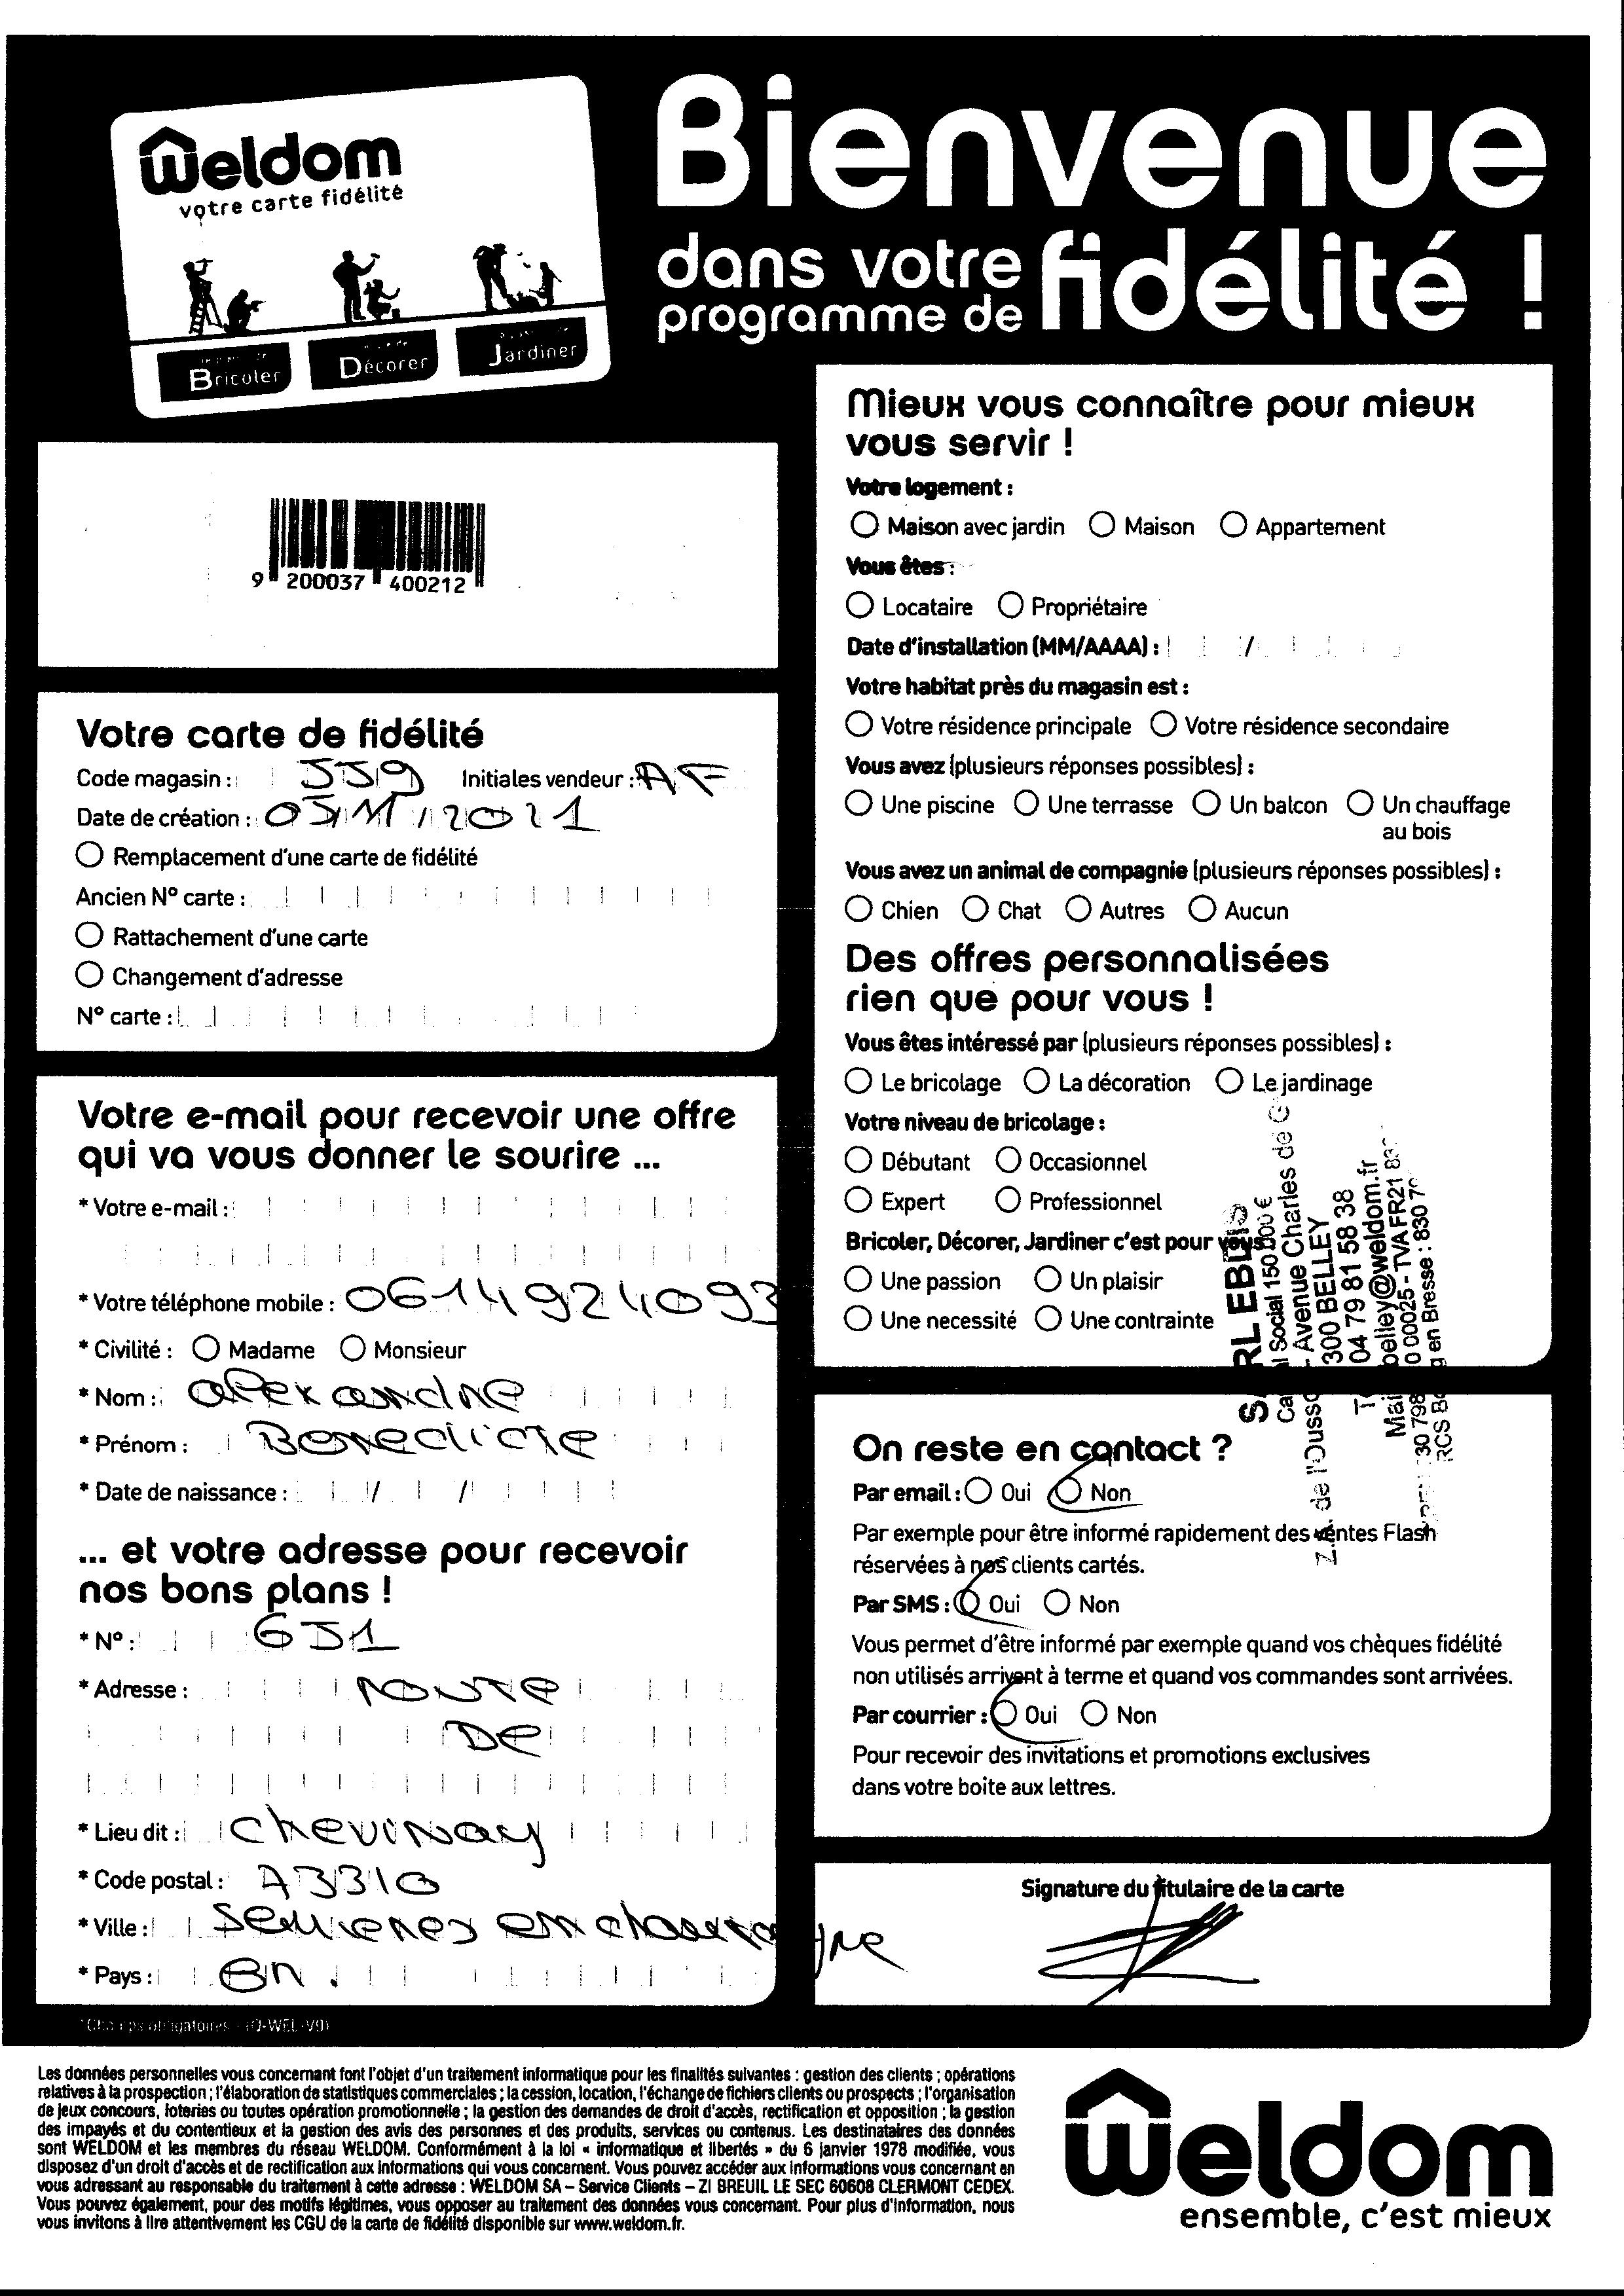 Weldom
votre carte fidélité
Bricoler
Décorer
Jardiner
Bienvenue
dans votre
programme de fidélité !
9 200037 400212
Votre carte de fidélité
Code magasin : 559 Initiales vendeur : AF
Date de création : 05/11/2021
Remplacement d'une carte de fidélité
Ancien N° carte :
Rattachement d'une carte
Changement d'adresse
N° carte :
Votre e-mail pour recevoir une offre
qui va vous donner le sourire ...
* Votre e-mail :
* Votre téléphone mobile : 0614924093
* Civilité : Madame Monsieur
* Nom : alexandre
* Prénom : Benedicte
* Date de naissance : / /
... et votre adresse pour recevoir
nos bons plans !
* N° : 651
* Adresse : route
De
* Lieu dit : Chevinay
* Code postal : 73310
* Ville : Serrieres en chautagne
* Pays :
*Champs obligatoires - (Q-WEL-V9)
Mieux vous connaître pour mieux
vous servir !
Votre logement :
Maison avec jardin Maison Appartement
Vous êtes :
Locataire Propriétaire
Date d'installation (MM/AAAA) : /
Votre habitat près du magasin est :
Votre résidence principale Votre résidence secondaire
Vous avez (plusieurs réponses possibles) :
Une piscine Une terrasse Un balcon Un chauffage
au bois
Vous avez un animal de compagnie (plusieurs réponses possibles) :
Chien Chat Autres Aucun
Des offres personnalisées
rien que pour vous !
Vous êtes intéressé par (plusieurs réponses possibles) :
Le bricolage La décoration Le jardinage
Votre niveau de bricolage :
Débutant Occasionnel
Expert Professionnel
Bricoler, Décorer, Jardiner c'est pour vous
Une passion Un plaisir
Une necessité Une contrainte
EBLIS
Social 150 000 €
Z.A. de l'Ousson - Avenue Charles de
300 BELLEY
04 79 81 58 38
belley@weldom.fr
00025 - TVA FR21
RCS Bourg en Bresse : 830
On reste en contact ?
Par email : Oui Non
Par exemple pour être informé rapidement des ventes Flash
réservées à nos clients cartés.
Par SMS : Oui Non
Vous permet d'être informé par exemple quand vos chèques fidélité
non utilisés arrivent à terme et quand vos commandes sont arrivées.
Par courrier : Oui Non
Pour recevoir des invitations et promotions exclusives
dans votre boite aux lettres.
Signature du titulaire de la carte
Les données personnelles vous concernant font l'objet d'un traitement informatique pour les finalités suivantes : gestion des clients ; opérations
relatives à la prospection ; l'élaboration de statistiques commerciales ; la cession, location, l'échange de fichiers clients ou prospects ; l'organisation
de jeux concours, loteries ou toutes opération promotionnelle ; la gestion des demandes de droit d'accès, rectification et opposition ; la gestion
des impayés et du contentieux et la gestion des avis des personnes et des produits, services ou contenus. Les destinataires des données
sont WELDOM et les membres du réseau WELDOM. Conformément à la loi « informatique et libertés » du 6 janvier 1978 modifiée, vous
disposez d'un droit d'accès et de rectification aux informations qui vous concernent. Vous pouvez accéder aux informations vous concernant en
vous adressant au responsable du traitement à cette adresse : WELDOM SA – Service Clients – ZI BREUIL LE SEC 60608 CLERMONT CEDEX.
Vous pouvez également, pour des motifs légitimes, vous opposer au traitement des données vous concernant. Pour plus d'information, nous
vous invitons à lire attentivement les CGU de la carte de fidélité disponible sur www.weldom.fr.
Weldom
ensemble, c'est mieux